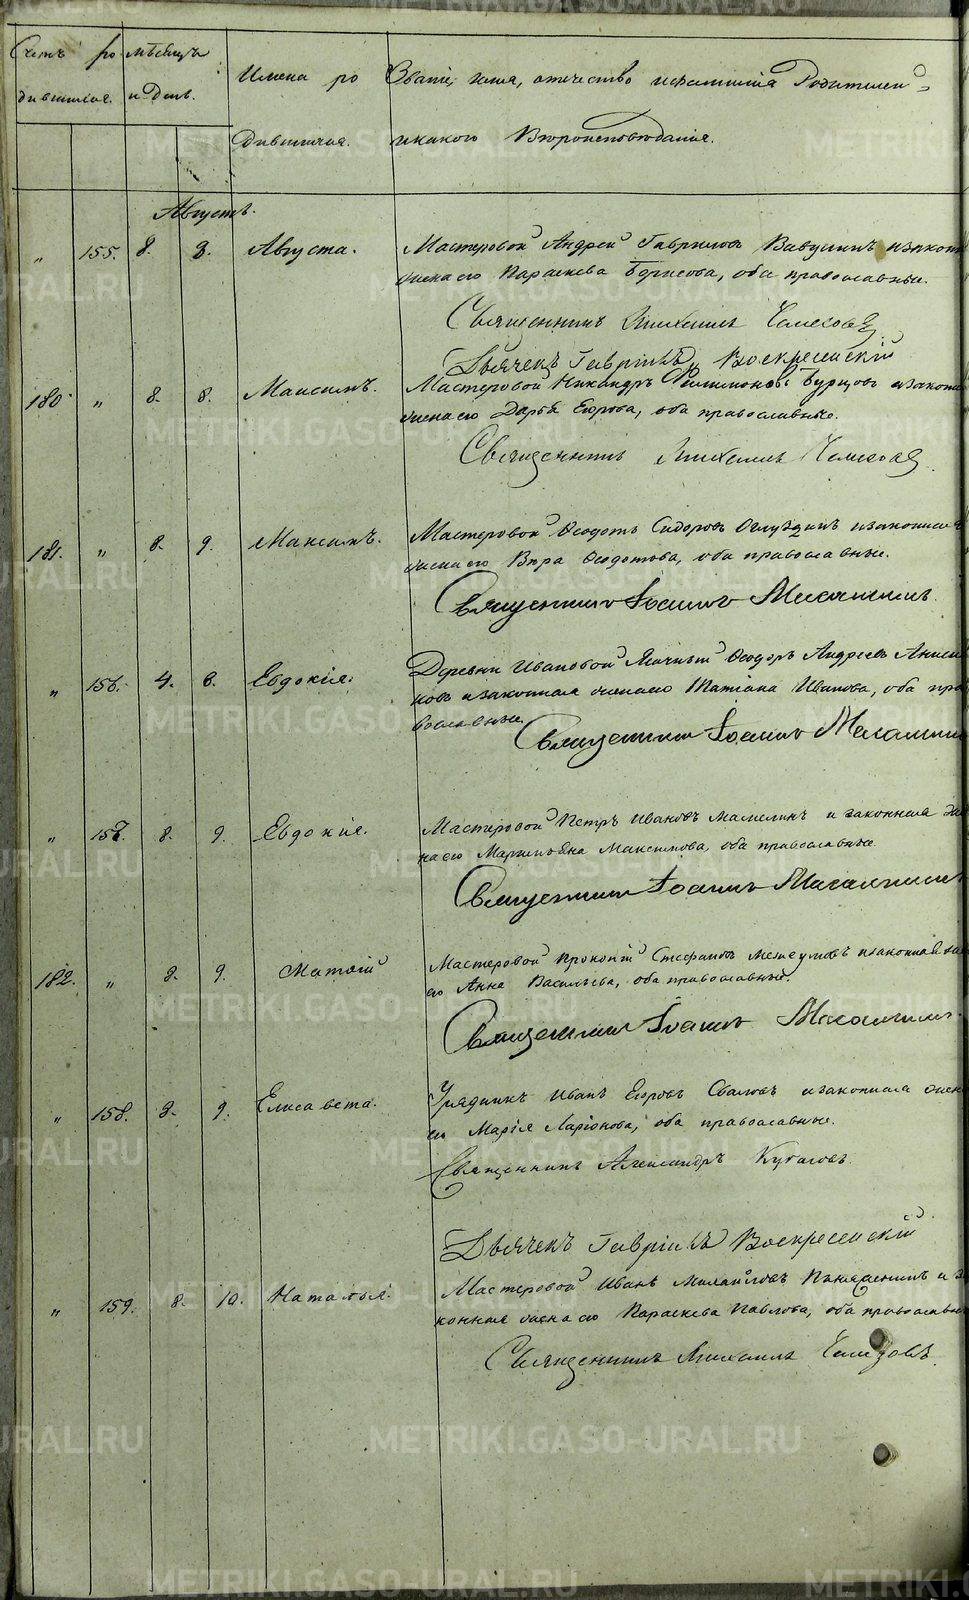 Счетъ ро
дившихся.
Мѣсяцъ
и День.
Имена ро
дившихся.
Званіе, имя, отчество и фамилія Родителей
и какого Вѣроисповѣданія.
Августъ.
„ 155. 8. 8. Августа. Мастеровой Андрей Гавриловъ
жена его Параскева Борисова, оба православные.
Священникъ Михаилъ
Дьячекъ Гавріилъ Воскресенскій
180. „ 8. 8. Максимъ. Мастеровой Никандръ Филимоновъ Бурцовъ и закон
жена его Дарья Егорова, оба православные.
Священникъ Михаилъ
181. „ 8. 9. Максимъ. Мастеровой Ѳеодотъ Сидоровъ и законная
жена его Вѣра Ѳеодотова, оба православные.
Священникъ Іоаннъ
„ 156. 4. 8. Евдокія. Деревни Ивановой Ѳеодоръ Андреевъ Аниси
ковъ и законная жена его Татіана Иванова, оба пра
вославные.
Священникъ Іоаннъ
„ 157. 8. 9. Евдокія. Мастеровой Петръ Ивановъ и законная же
на его Максимова, оба православные.
Священникъ Іоаннъ
182. „ 8. 9. Матѳій Мастеровой Прокопій Стефановъ и законная жена
его Анна Васильева, оба православные.
Священникъ Іоаннъ
„ 158. 3. 9. Елисавета. Урядникъ Иванъ Егоровъ и законная жена
его Марія Ларіонова, оба православные.
Священникъ Александръ
Дьячекъ Гавріилъ Воскресенскій
„ 159. 8. 10. Наталья. Мастеровой Иванъ Михайловъ и за
конная жена его Параскева Павлова, оба православные
Священникъ Михаилъ
METRIKI.GASO-URAL.RU